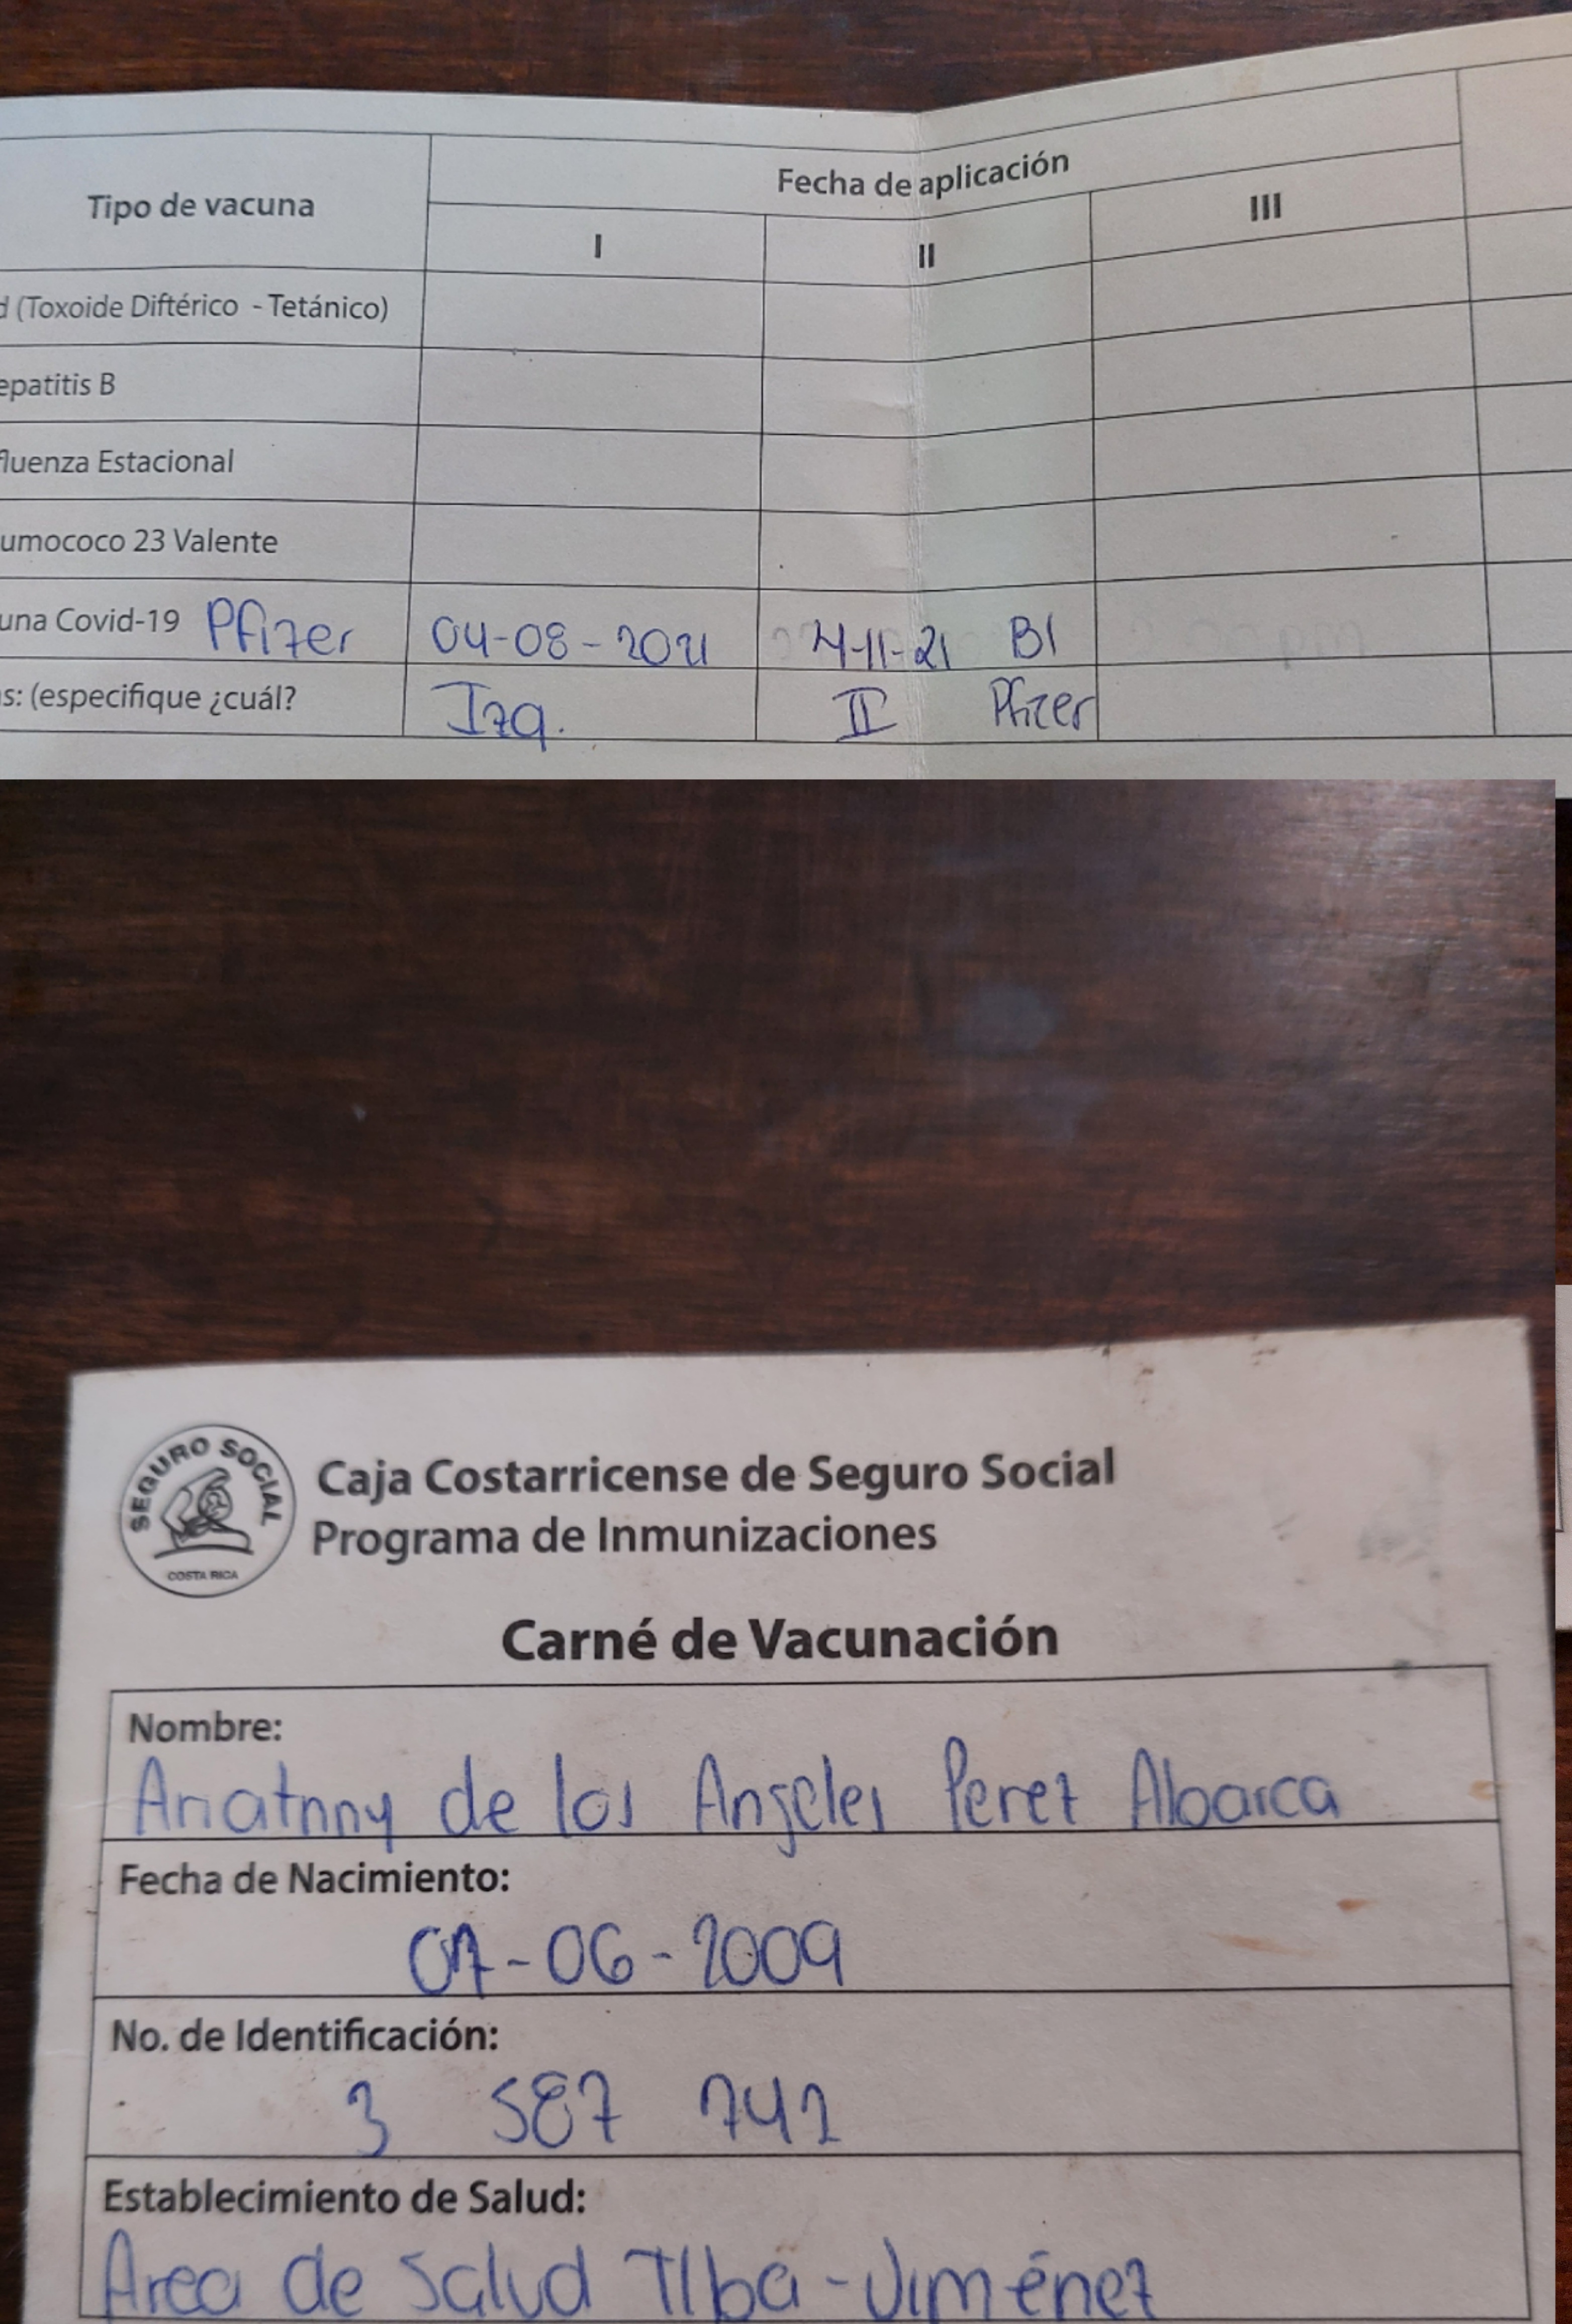 Fecha de aplicación
Tipo de vacuna
I II III
d (Toxoide Diftérico - Tetánico)
epatitis B
fluenza Estacional
umococo 23 Valente
una Covid-19 Pfizer 04-08-2021 4-11-21 B1
s: (especifique ¿cuál? Izq. II Pfizer
SEGURO SOCIAL
COSTA RICA
Caja Costarricense de Seguro Social
Programa de Inmunizaciones
Carné de Vacunación
Nombre:
de los Angeles Perez Abarca
Fecha de Nacimiento:
07-06-2009
No. de Identificación:
3 587 742
Establecimiento de Salud:
Area de Salud T/ba-Jiménez